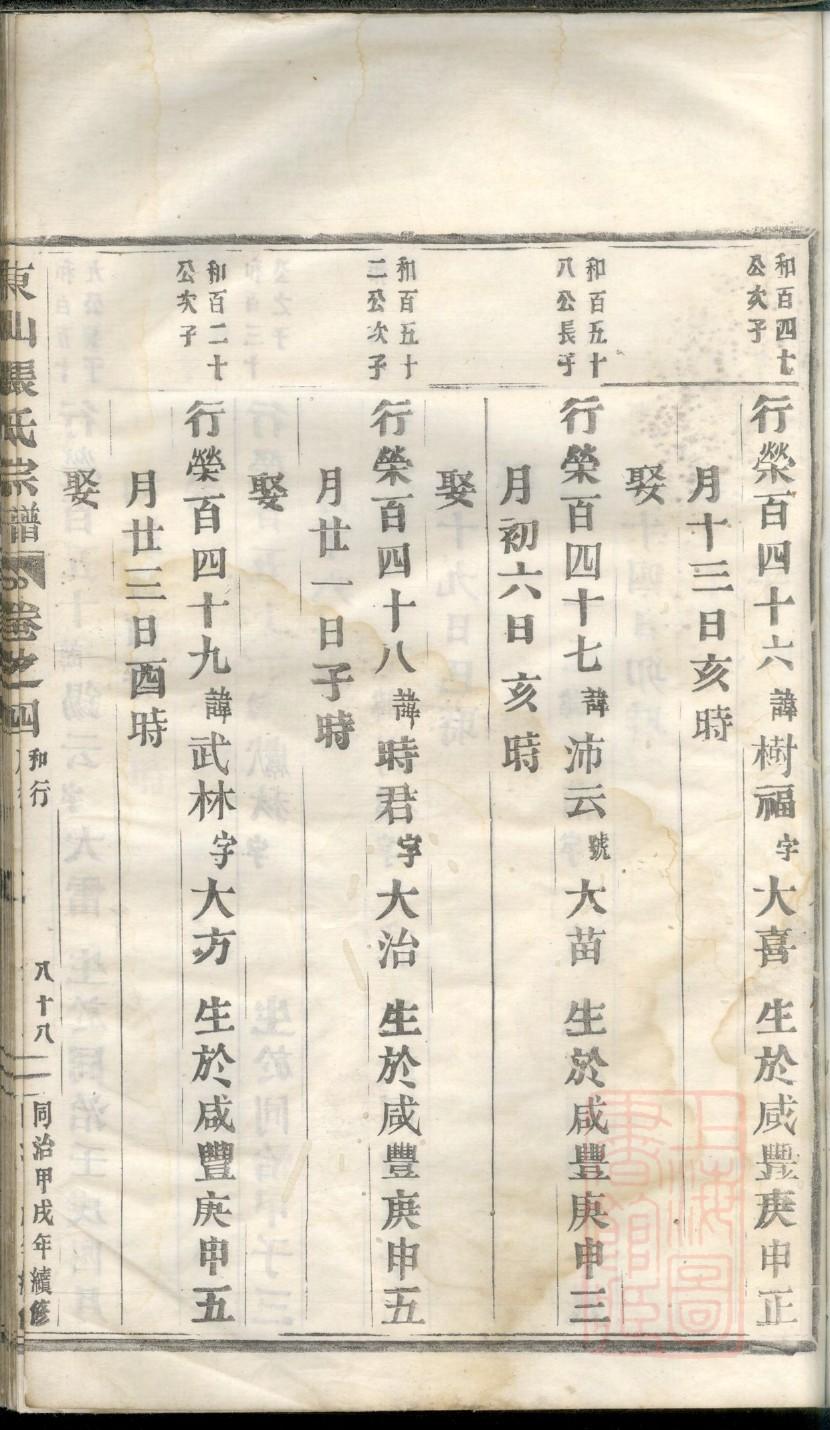 和百四七
公次子
行榮百四十六諱樹福字大喜 生於咸豐庚申正
月十三日亥時
娶
和百五十
八公長子
行榮百四十七諱沛云號大苗 生於咸豐庚申三
月初六日亥時
娶
和百五十
二公次子
行榮百四十八諱時君字大治 生於咸豐庚申五
月廿一日子時
娶
和百二十
公次子
行榮百四十九諱武林字大方 生於咸豐庚申五
月廿三日酉時
娶
東山張氏宗譜 卷之四 和行 八十八 同治甲戌年續修
上海圖
書館藏